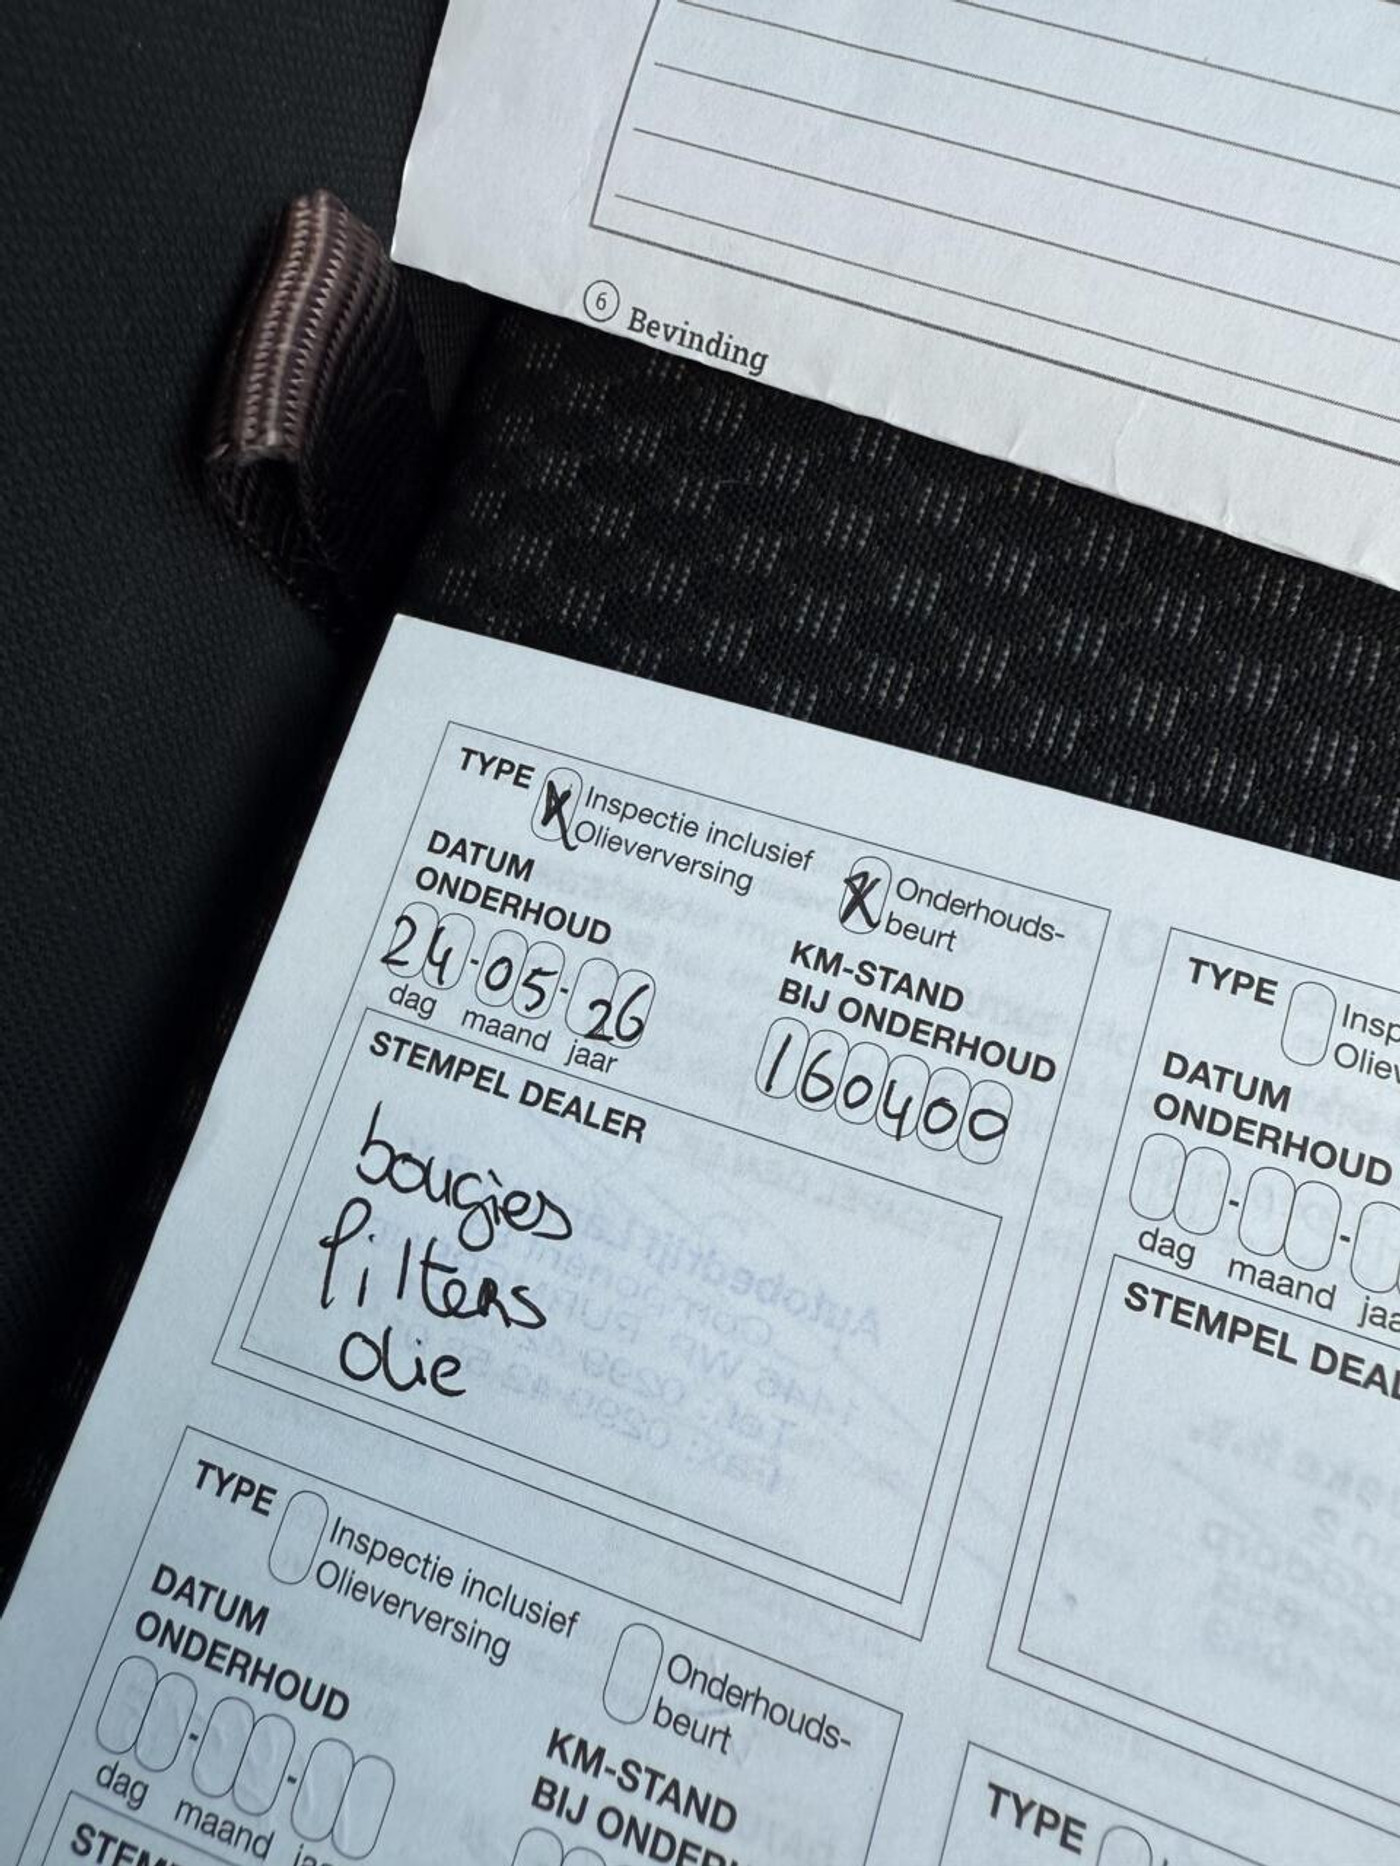 6 Bevinding
TYPE Inspectie inclusief
Olieverversing
Onderhouds-
beurt
DATUM
ONDERHOUD
24-05-26
dag maand jaar
KM-STAND
BIJ ONDERHOUD
160400
STEMPEL DEALER
bougies
filters
olie
TYPE Insp
Oliev
DATUM
ONDERHOUD
dag maand jaa
STEMPEL DEAL
TYPE Inspectie inclusief
Olieverversing
Onderhouds-
beurt
DATUM
ONDERHOUD
dag maand ja
KM-STAND
BIJ ONDER
STEM
TYPE